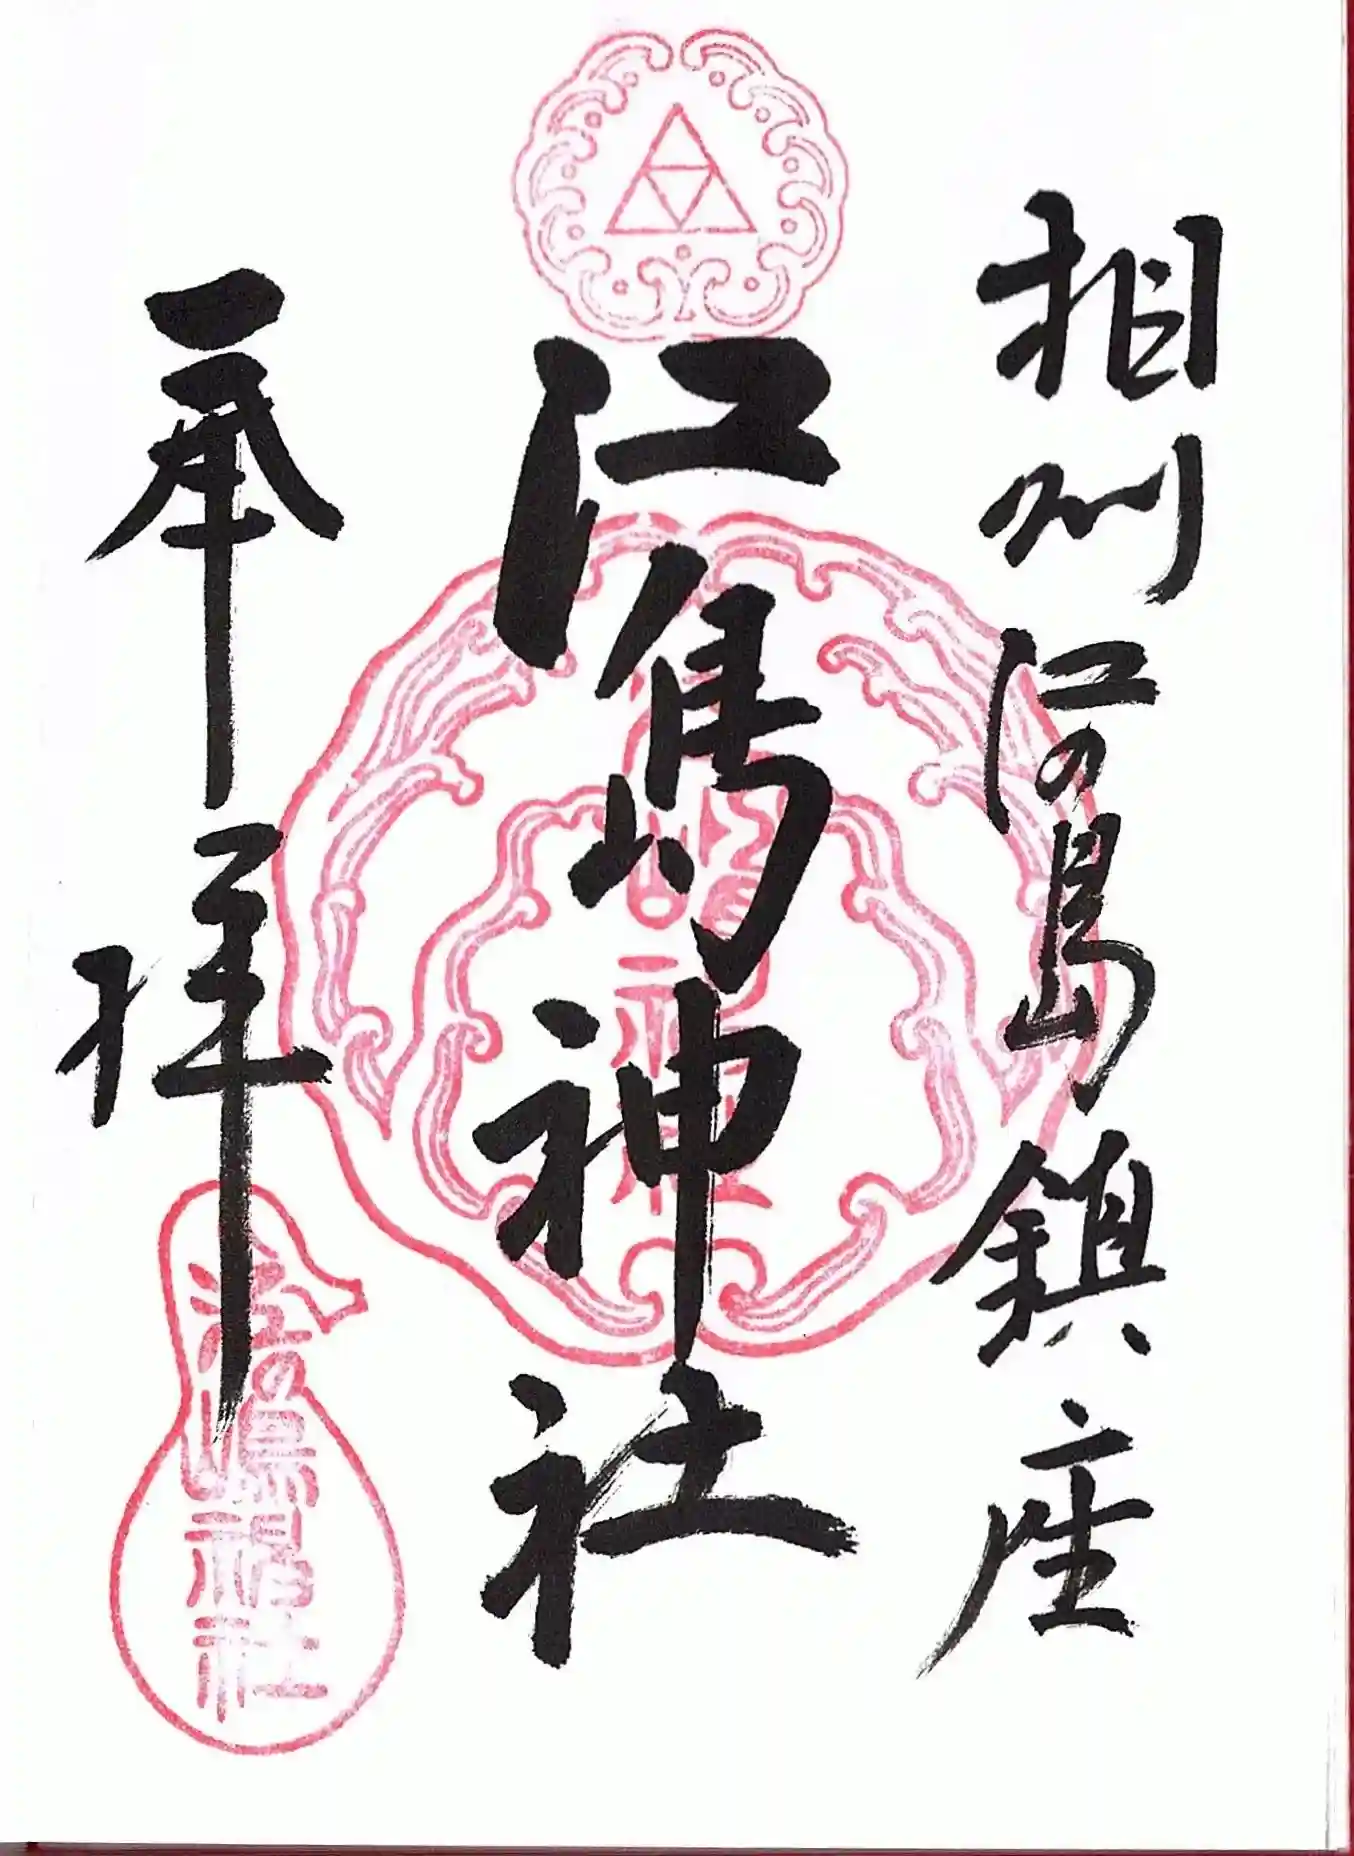 相州江の島鎮座
江島神社
奉拝
江の嶋神社